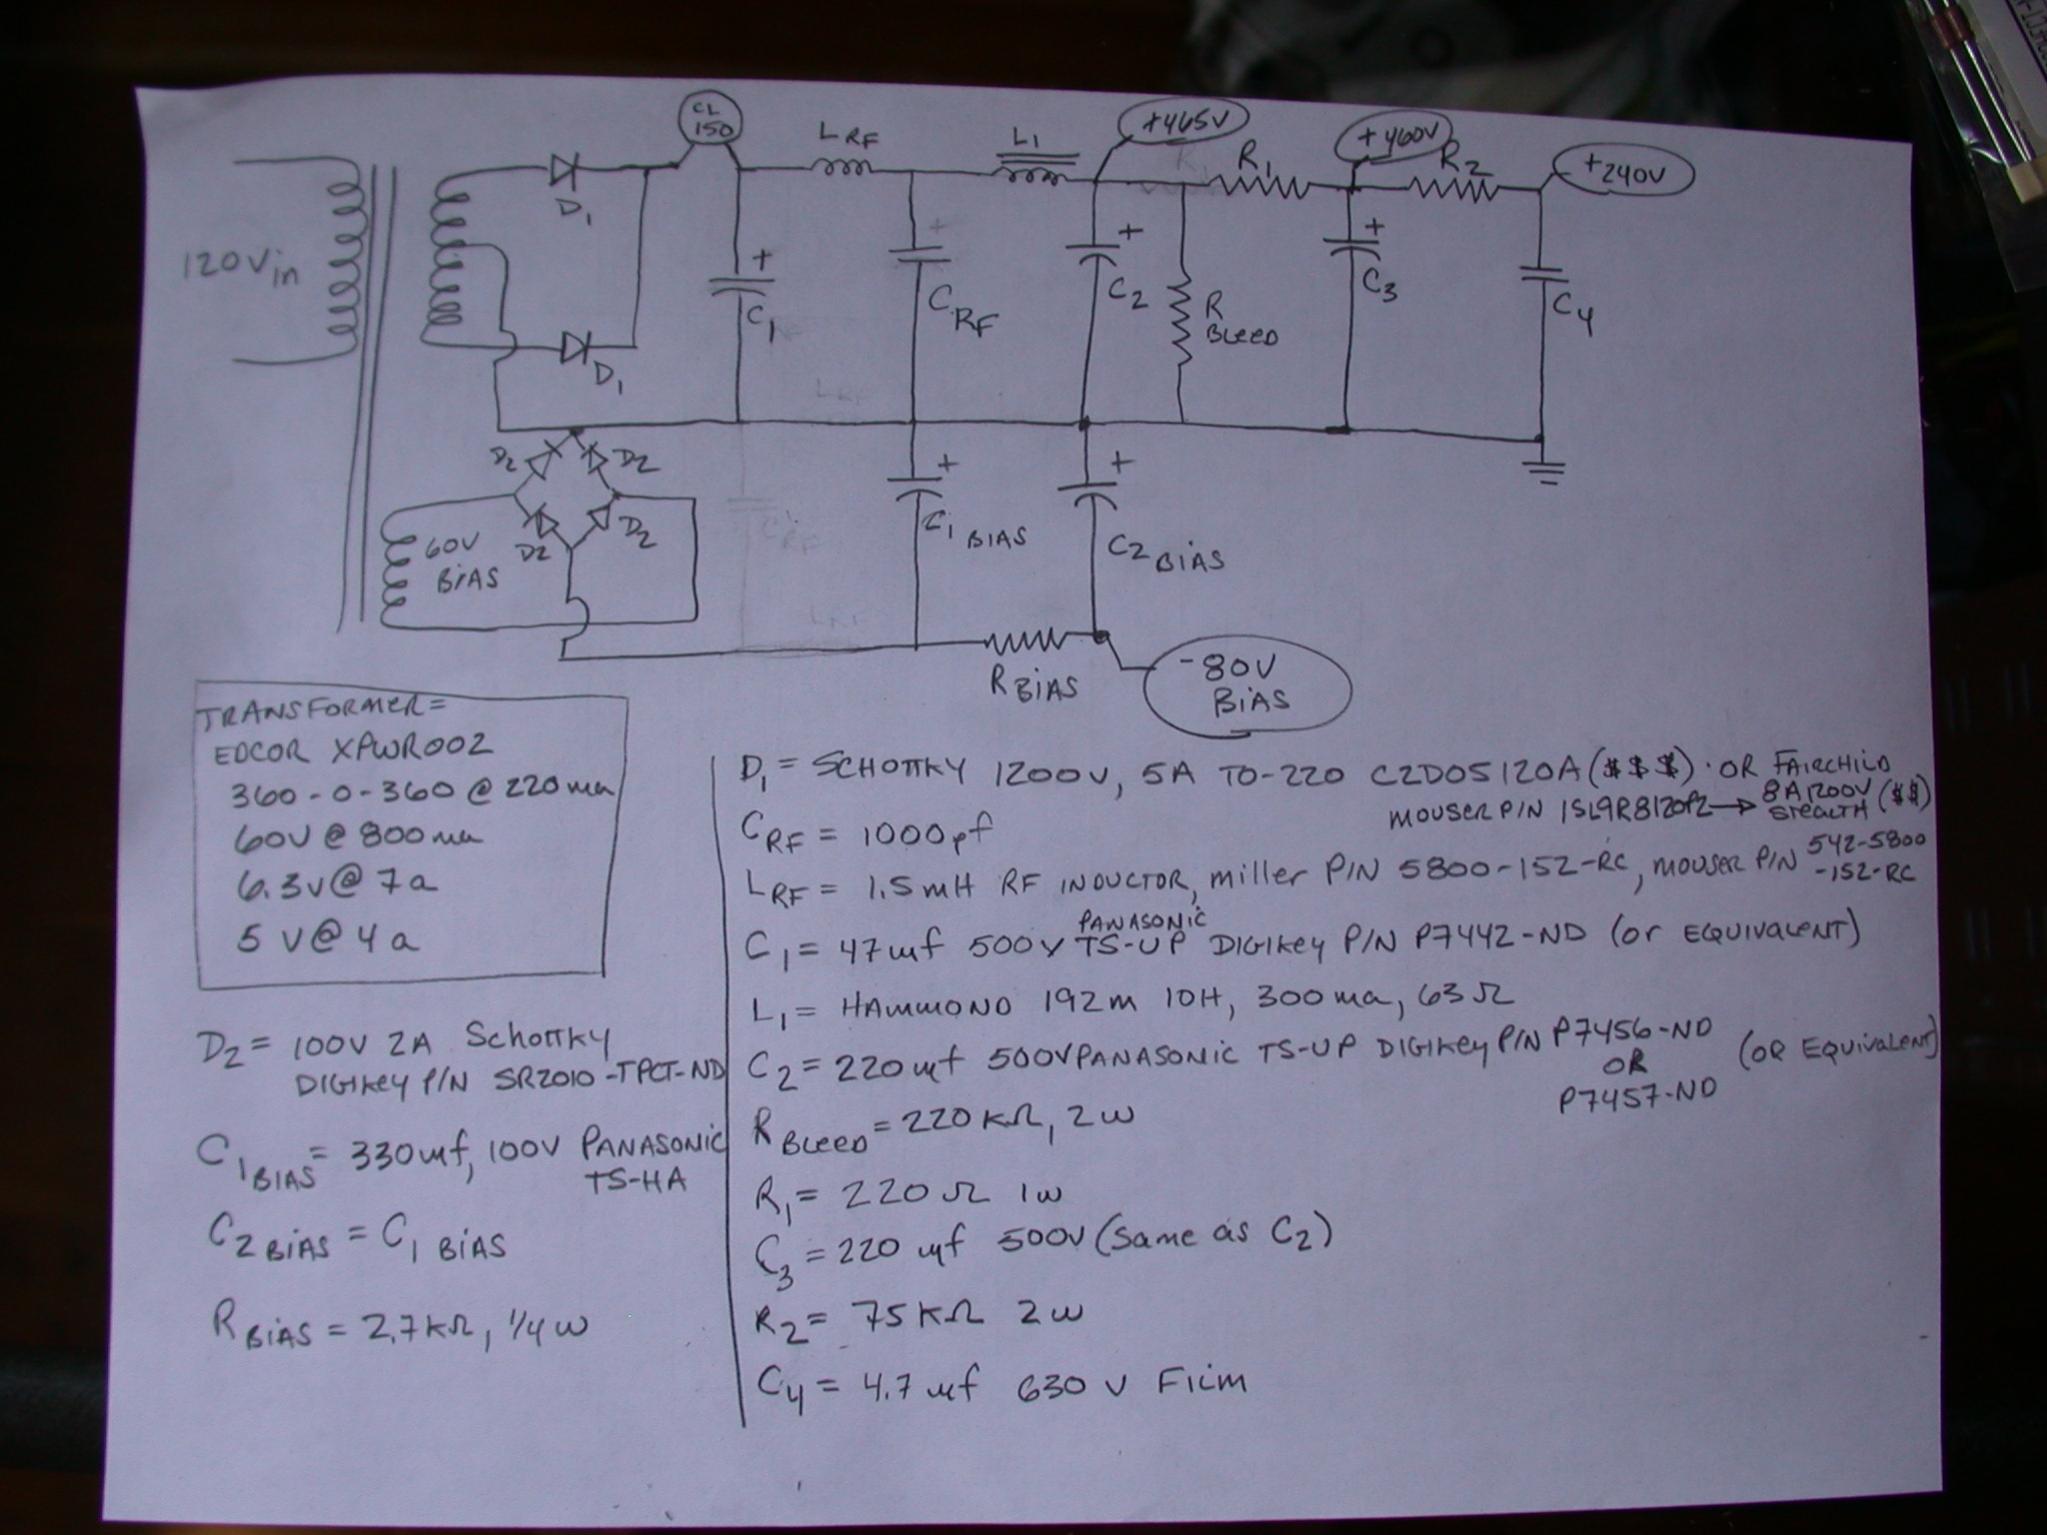 CL
150
LRF
L1
+465V
+460V
+240V
R1
R2
120Vin
D1
D1
+
C1
+
CRF
+
C2
R
BLEED
+
C3
C4
D2
D2
D2
D2
60V
BiAS
+
C1 BiAS
+
C2 BiAS
RBiAS
-80V
BiAS
LRF
CRF
LRF
TRANSFORMER=
EDCOR XPWR002
360-0-360 @ 220ma
60V @ 800ma
6.3v@ 7a
5 v@ 4a
D2 = 100V 2A Schottky
DIGIkey P/N SR2010-TPCT-ND
C1BIAS = 330uf, 100V PANASONIC
TS-HA
C2 BiAS = C1 BiAS
RBiAS = 2.7kΩ, 1/4w
D1 = SCHOTTKY 1200v, 5A TO-220 C2D05120A ($$$) · OR FAIRCHILD
MOUSER P/N ISL9R8120P2 → 8A1200V STEALTH ($$)
CRF = 1000pf
LRF = 1.5mH RF INDUCTOR, miller P/N 5800-152-RC, MOUSER P/N 542-5800
-152-RC
C1 = 47uf 500V PANASONIC TS-UP DIGIkey P/N P7442-ND (or EQUIVALENT)
L1 = HAMMOND 192m 10H, 300ma, 63Ω
C2 = 220uf 500V PANASONIC TS-UP DIGIkey P/N P7456-ND (OR EQUIVALENT)
OR
P7457-ND
RBLEED = 220kΩ, 2w
R1 = 220Ω 1w
C3 = 220 uf 500v (Same as C2)
R2 = 75kΩ 2w
C4 = 4.7 uf 630 v Film